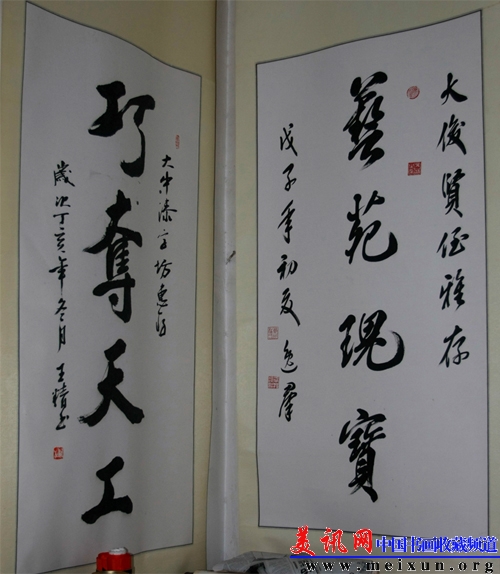 大俊贤侄雅存
藝苑瑰寶
戊子年初夏
逸群
巧奪天工
歲次丁亥年冬月 王精书
美讯网 中国书画收藏频道
www.meixun.org